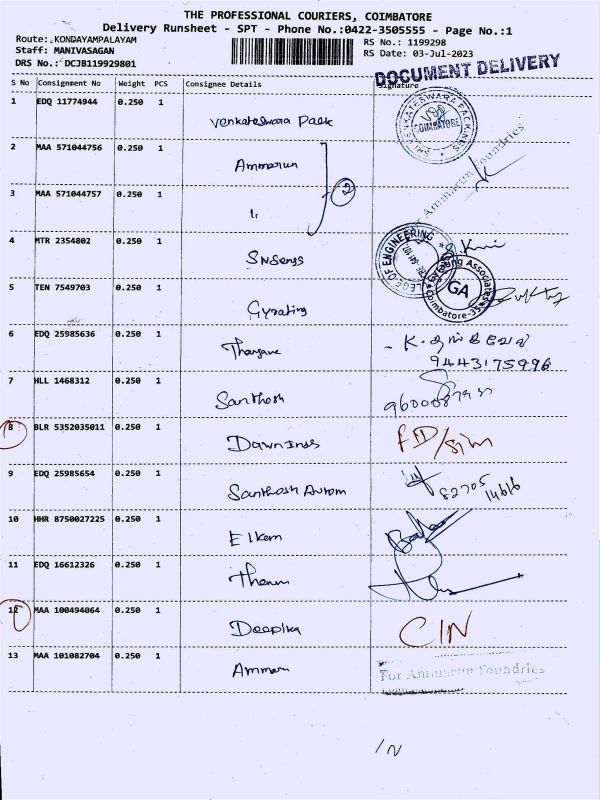 THE PROFESSIONAL COURIERS, COIMBATORE
Delivery Runsheet - SPT - Phone No.:0422-3505555 - Page No.:1
Route: KONDAYAMPALAYAM
RS No.: 1199298
Staff: MANIVASAGAN
RS Date: 03-Jul-2023
DRS No.: DCJB119929801
DOCUMENT DELIVERY
S No Consignment No Weight PCS Consignee Details Signature
1 EDQ 11774944 0.250 1 Venkateswara Pack
COIMBATORE
2 MAA 571044756 0.250 1 Ammarun
2
For Ammarun Foundries
3 MAA 571044757 0.250 1 "
4 MTR 2354802 0.250 1 SNSengs
COLLEGE OF ENGINEERING
5 TEN 7549703 0.250 1 Gyrating
Gyrating Associates
GA
Coimbatore-35
6 EDQ 25985636 0.250 1 Thangave
9443175996
7 HLL 1468312 0.250 1 Santhosh
8 BLR 5352035011 0.250 1 Dawn Inds
9 EDQ 25985654 0.250 1 Santhosh Autom
82705
14616
10 HHR 8750027225 0.250 1 Elkem
11 EDQ 16612326 0.250 1
12 MAA 100494064 0.250 1 Deepika CIN
13 MAA 101082704 0.250 1 Ammaru
For Ammarun Foundries